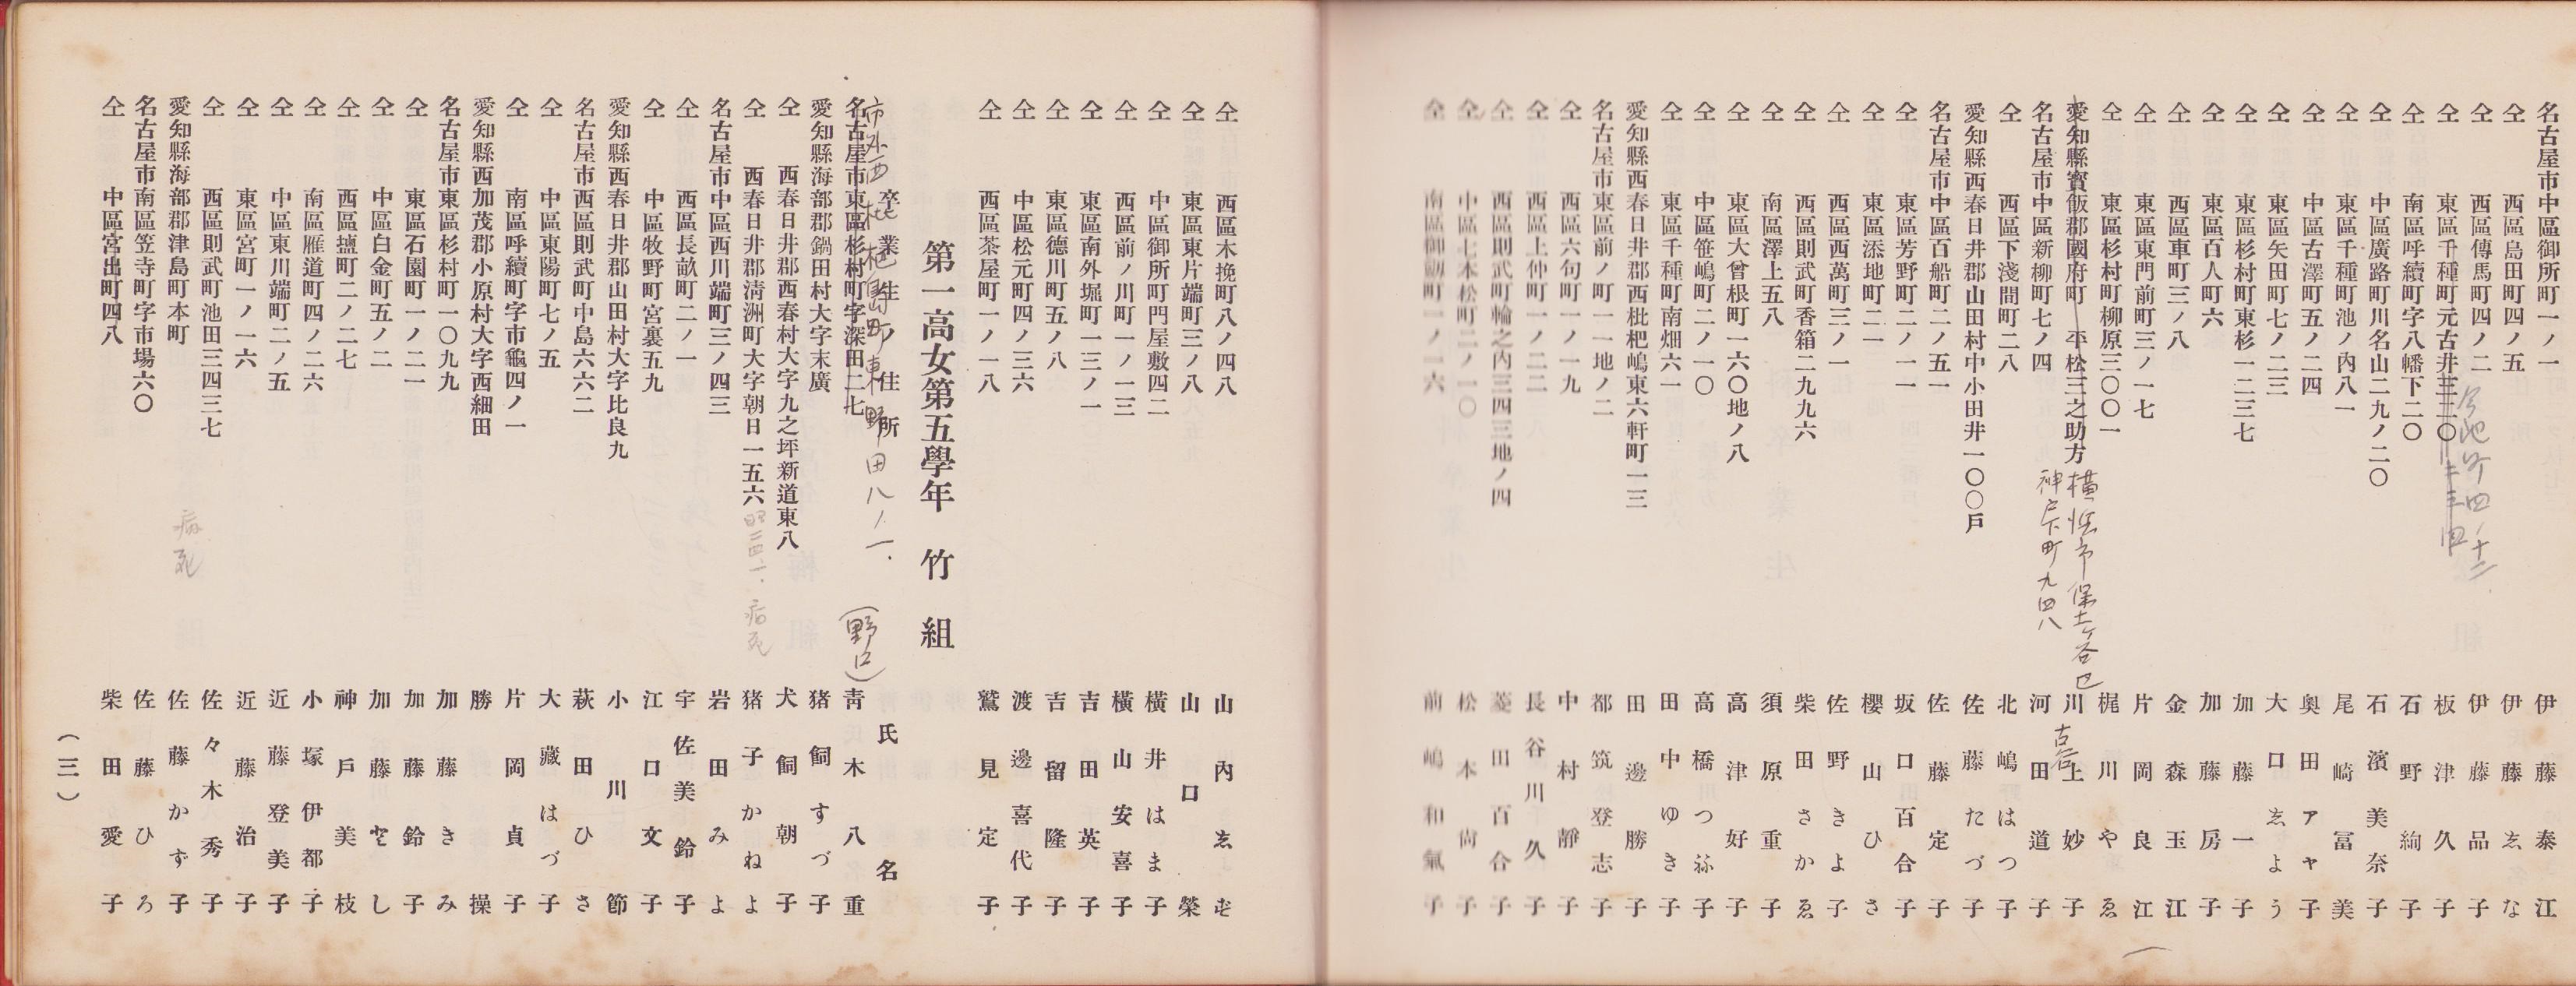 名古屋市中區御所町一ノ一 伊藤泰江
仝 西區島田町四ノ五 伊藤ゑな
仝 西區傳馬町四ノ二 伊藤品子
今池町四ノ十二
仝 東區千種町元古井三二〇 板津久子
二三四
仝 南區呼續町字八幡下二〇 石野絢子
仝 中區廣路町川名山二九ノ二〇 石濱美奈子
仝 東區千種町池ノ內八一 尾崎冨美
仝 中區古澤町五ノ二四 奧田アヤ子
仝 東區矢田町七ノ二三 大口ゑよう
仝 東區杉村町東杉一二三七 加藤一子
仝 東區百人町六 加藤房子
仝 西區車町三ノ八 金森玉江
仝 東區東門前町三ノ一七 片岡良江
仝 東區杉村町柳原三〇〇一 梶川やゑ
愛知縣寳飯郡國府町 平松三之助方 川上妙子
橫濱市保土ヶ谷區
神戸下町九四八
名古屋市中區新柳町七ノ四 河田道子
仝 西區下淺間町二八 北嶋はつ子
愛知縣西春日井郡山田村中小田井一〇〇戶 佐藤たづ子
名古屋市中區百船町二ノ五一 佐藤定子
仝 東區芳野町二ノ一一 坂口百合子
仝 東區添地町二一 櫻山ひさ
仝 西區西萬町三ノ一 佐野きよ子
仝 西區則武町香箱二九九六 柴田さかゑ
仝 南區澤上五八 須原重子
仝 東區大曾根町一六〇地ノ八 高津好子
仝 中區笹嶋町二ノ一〇 高橋つね子
仝 東區千種町南畑六一 田中ゆき子
愛知縣西春日井郡西枇杷嶋東六軒町一三 田邊勝子
名古屋市東區前ノ町一一地ノ二 都筑登志子
仝 西區六句町一ノ一九 中村靜子
仝 西區上仲町一ノ二二 長谷川久子
仝 西區則武町輪之內三四三地ノ四 菱田百合子
仝 中區七本松町二ノ一〇 松本尙子
仝 南區御劒町一ノ一六 前嶋和氣子
仝 西區木挽町八ノ四八 山內ゑい
仝 東區東片端町三ノ八 山口榮
仝 中區御所町門屋敷四二 橫井はま子
仝 西區前ノ川町一ノ一三 橫山安喜子
仝 東區南外堀町一三ノ一 吉田英子
仝 東區德川町五ノ八 吉留隆子
仝 中區松元町四ノ三六 渡邊喜代子
仝 西區茶屋町一ノ一八 鷲見定子
第一高女第五學年 竹組
卒業生ノ住所 氏名
市外西枇杷島町東野田八ノ一.
名古屋市東區杉村町字深田二七 (野口) 靑木八重
愛知縣海部郡鍋田村大字末廣 猪飼すづ子
仝 西春日井郡西春村大字九之坪新道東八 犬飼朝子
仝 西春日井郡淸洲町大字朝日一五六 病死 猪子かねよ
名古屋市中區西川端町三ノ四三 岩田みよ
仝 西區長畝町二ノ一 宇佐美鈴子
仝 中區牧野町宮裏五九 江口文子
愛知縣西春日井郡山田村大字比良九 小川節
名古屋市西區則武町中島六六二 萩田ひさ
仝 中區東陽町七ノ五 大藏はづ子
仝 南區呼續町字市龜四ノ一 片岡貞子
愛知縣西加茂郡小原村大字西細田 勝操
名古屋市東區杉村町一〇九九 加藤きみ
仝 東區石園町一ノ二一 加藤鈴子
仝 中區白金町五ノ二 加藤としし
仝 西區鹽町二ノ二七 神戶美枝
仝 南區雁道町四ノ二六 小塚伊都子
仝 中區東川端町二ノ五 近藤登美子
仝 東區宮町一ノ一六 近藤治子
仝 西區則武町池田三四三七 佐々木秀子
愛知縣海部郡津島町本町 病死 佐藤かず子
名古屋市南區笠寺町字市場六〇 佐藤ひろ
仝 中區宮出町四八 柴田愛子
(三)